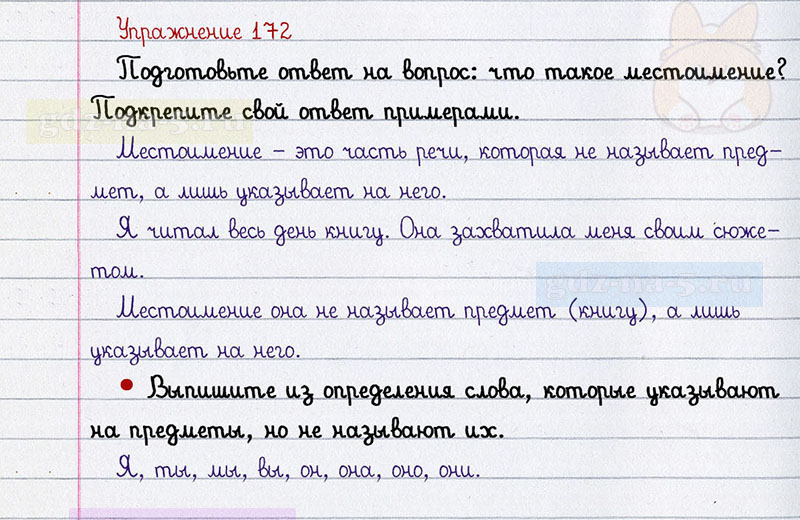 Упражнение 172
Подготовьте ответ на вопрос: что такое местоимение?
Подкрепите свой ответ примерами.
Местоимение – это часть речи, которая не называет пред-
мет, а лишь указывает на него.
Я читал весь день книгу. Она захватила меня своим сюже-
том.
gdz-na-5.ru
Местоимение она не называет предмет (книгу), а лишь
указывает на него.
• Выпишите из определения слова, которые указывают
на предметы, но не называют их.
Я, ты, мы, вы, он, она, оно, они.